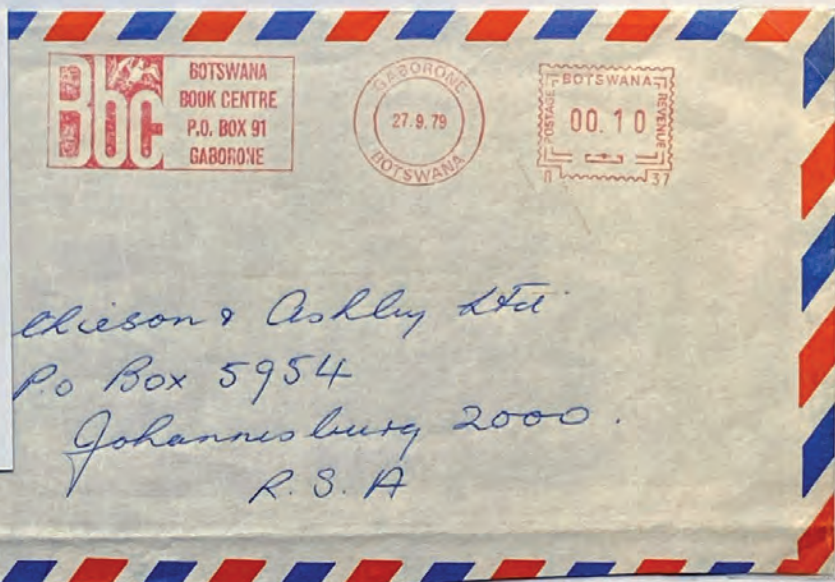 BBC
BOTSWANA
BOOK CENTRE
P.O. BOX 91
GABORONE
GABORONE
27.9.79
BOTSWANA
BOTSWANA
POSTAGE
REVENUE
00.10
37
& Ashley Ltd
P.o Box 5954
Johannesburg 2000.
R.S.A